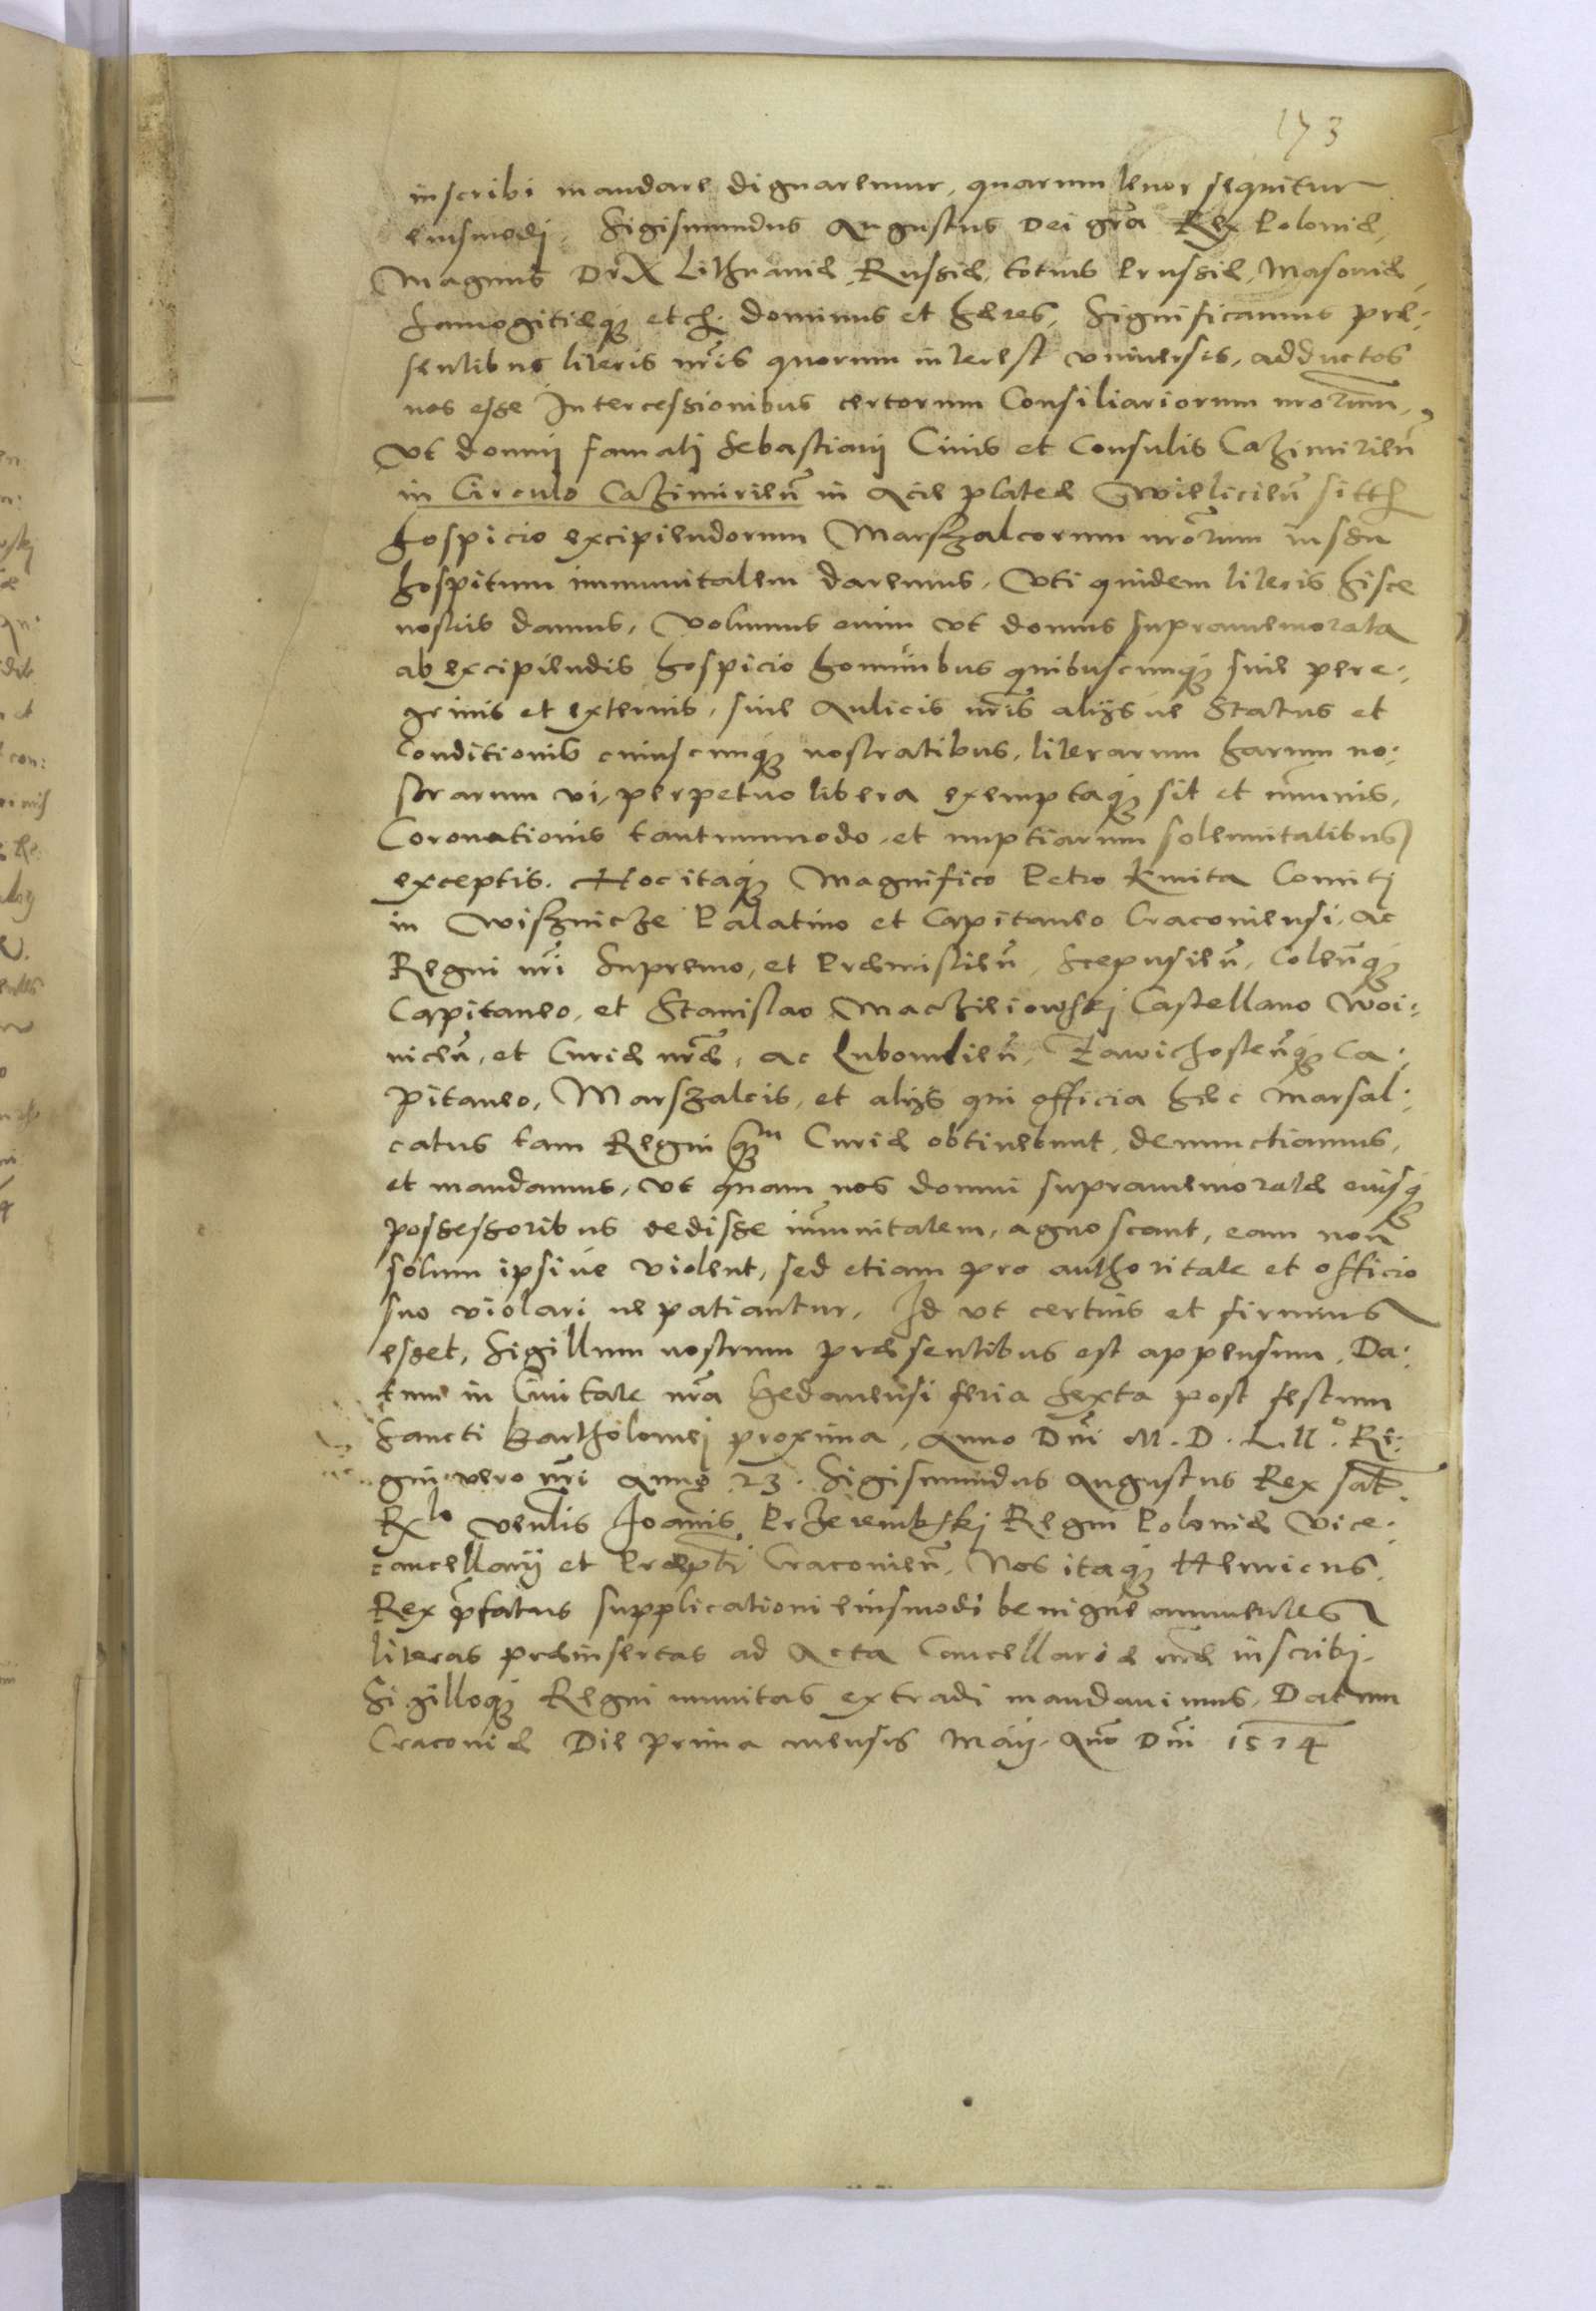 173
inscribi mandare dignaremur, quarum tenor sequitur
eiusmodj. Sigismundus Augustus Dei gra͂ Rex Poloniæ,
Magnus Dux Lithuaniæ, Russiæ, totius Prussiæ, Masouiæ,
Samogitiæq; etc. dominus et hæres, Significamus præ:
sentibus literis nr͂is quorum interest vniuersis, adductos
nos esse Intercessionibus certorum Consiliariorum nror͂um,
vt domuj famatj Sebastiani Ciuis et Consulis Cazimirien͂
in Circulo Cazimirien͂ in Acie plateæ Wielicien͂ sitæ
hospicio excipiendorum Marszalcorum nror͂um iussu
hospitum immunitatem daremus, Vti quidem literis hisce
nostris damus, Volumus enim vt domus supramemorata
ab excipiendis hospicio hominibus quibuscunq; siue pere:
grinis et externis, siue Aulicis nr͂is alijsue Status et
conditionis cuiuscunq; nostratibus, literarum harum no:
strarum vi, perpetuo libera exemptaq; sit et im͂unis,
Coronationis tantummodo, et nuptiarum solemnitatibus
exceptis. Hoc itaq; Magnifico Petro Kmita Comitj
in Wisznicze Palatino et Capitaneo Cracouiensi, ac
Regni nr͂i Supremo, et Præmislien͂, Scepusien͂, Colen͂q;
Capitaneo, et Stanislao Maczieiowskj Castellano Woi:
nicen͂, et Curiæ nr͂æ, ac Lubomlien͂, Zawichosten͂q; Ca:
pitaneo, Marszalcis, et alijs qui officia hæc Marsal:
catus tam Regni qm̃ Curiæ obtinebunt, denunctiamus,
et mandamus, vt quam nos domui supramemoratæ eiusq;
possessoribus dedisse im͂unitatem, agnoscant, eam non
solum ipsi ne violent, sed etiam pro authoritate et officio
suo violari ne patiantur. Id vt certius et firmius
esset, Sigillum nostrum præsentibus est appensum, Da:
tum in Ciuitate nr͂a Gedanensi feria Sexta post festum
Sancti Bartholomej proxima, Anno Dn͂i M. D. L. II.° Re:
gni vero nr͂i Anno 23. Sigismundus Augustus Rex sst͂.
Rlo ven͂lis Joan͂is Przerembskj Regni Poloniæ Vice:
cancellarij et Præpti Cracouien͂. Nos itaq; Henricus
Rex p͂fatus supplicationi eiusmodi benigne annuentes
literas præinsertas ad Acta Cancellariæ nr͂æ inscribi,
Sigilloq; Regni munitas extradi mandauimus, Datum
Cracouiæ Die Prima mensis Maij. Ano͂ Dn͂i 1574